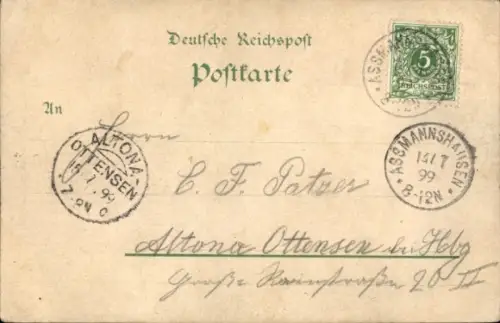 Deutsche Reichspost
Postkarte
An
ASSMANNSHAUSEN
8-12N
5
REICHSPOST
ALTONA
OTTENSEN
7.99
7-8N
ASSMANNSHAUSEN
13/7
99
8-12N
Herrn
C. F. Patzer
Altona Ottensen bei Hbg
Große Rainstraße 20 II